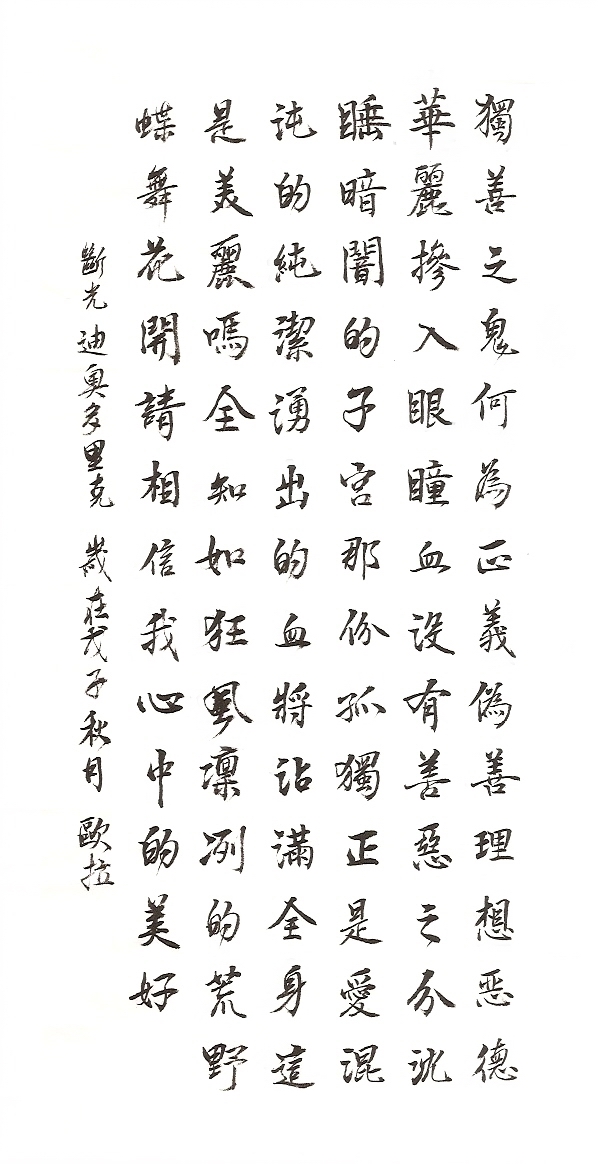 獨善之鬼何為正義偽善理想悪德
華麗摻入眼瞳血没有善惡之分沈
睡暗闇的子宮那份孤獨正是愛混
沌的純潔湧出的血將沾滿全身這
是美麗嗎全知如狂風凜冽的荒野
蝶舞花開請相信我心中的美好
斷光迪奧多里克 歲在戊子秋月 歐拉